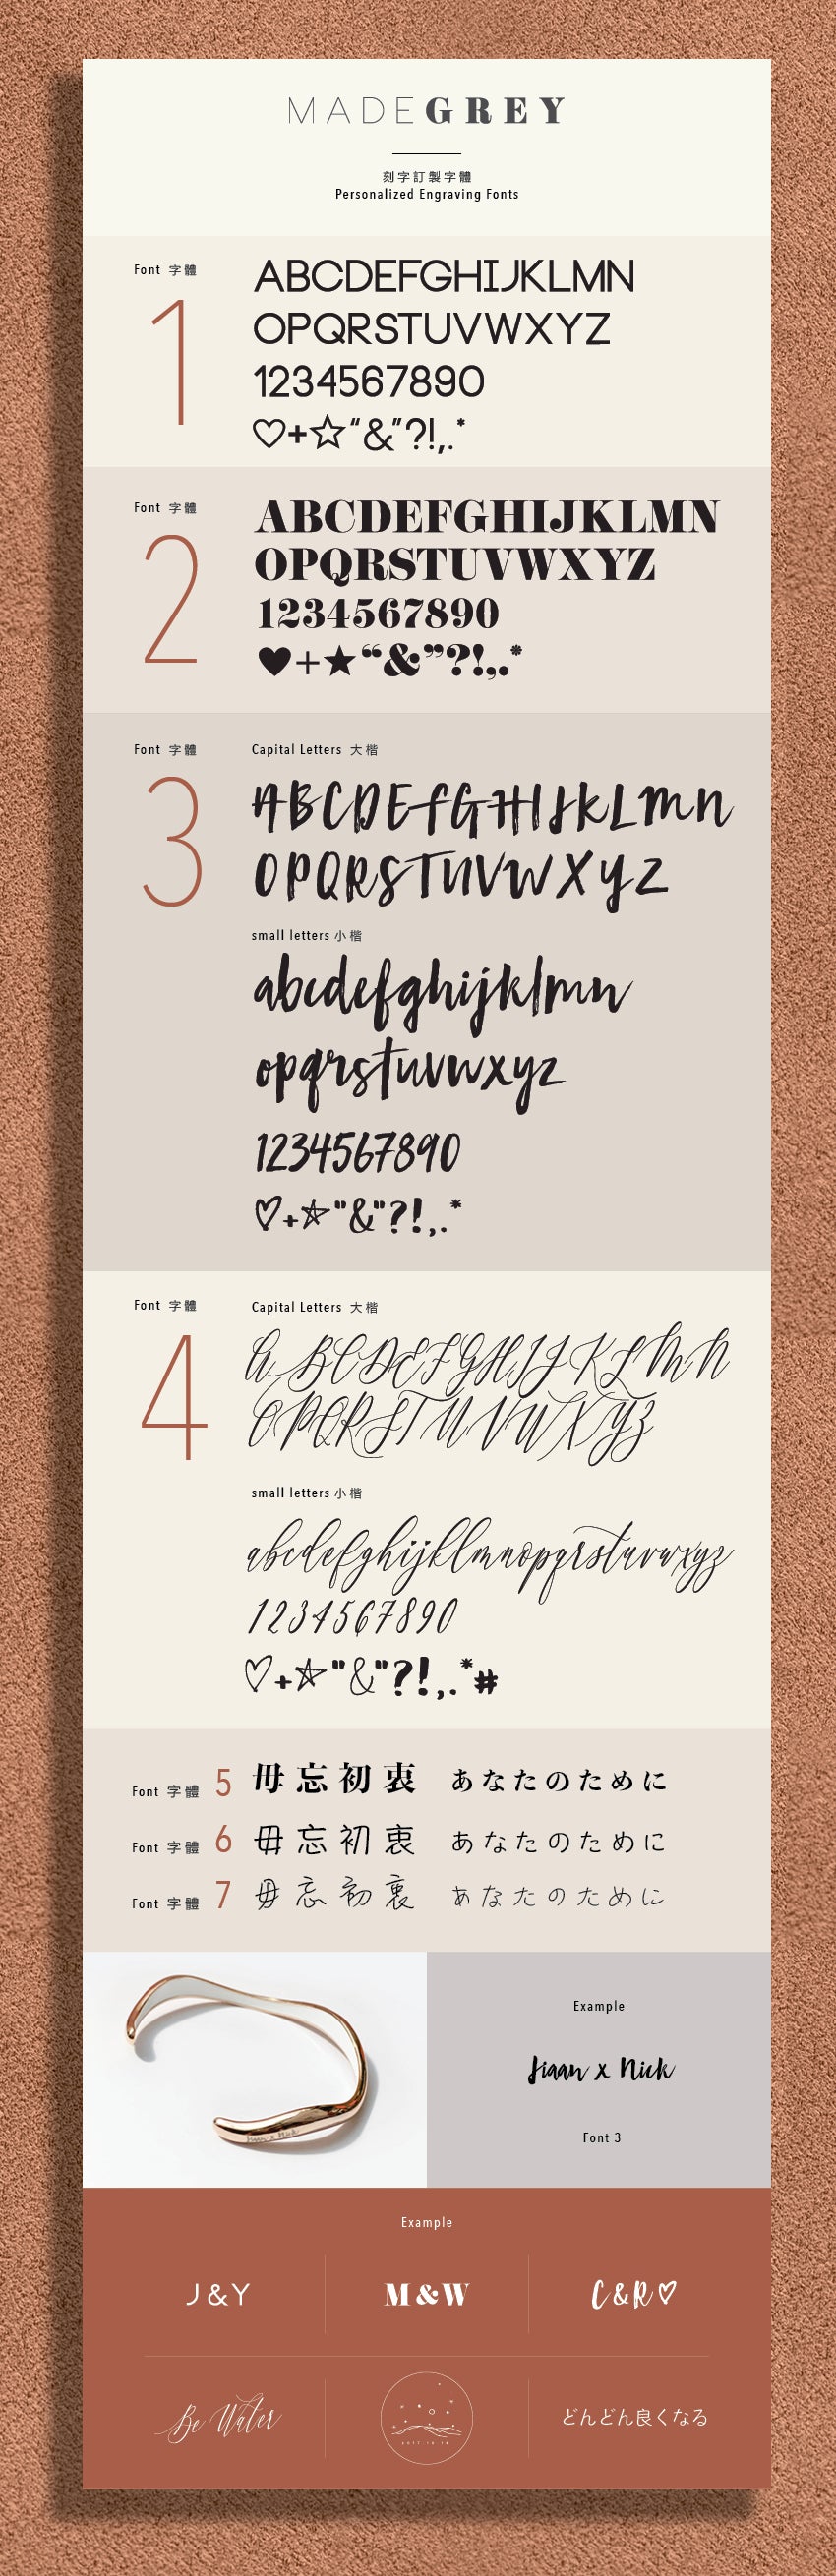 MADEGREY
刻字訂製字體
Personalized Engraving Fonts
Font 字體
1
ABCDEFGHIJKLMN
OPQRSTUVWXYZ
1234567890
♡+☆“&”?!,.*
Font 字體
2
ABCDEFGHIJKLMN
OPQRSTUVWXYZ
1234567890
♥+★“&”?!,.*
Font 字體
3
Capital Letters 大楷
ABCDEFGHIJKLMN
OPQRSTUVWXYZ
small letters 小楷
abcdefghijklmn
opqrstuvwxyz
1234567890
♡+☆"&"?!,.*
Font 字體
4
Capital Letters 大楷
ABCDEFGHIJKLMN
OPQRSTUVWXYZ
small letters 小楷
abcdefghijklmnopqrstuvwxyz
1234567890
♡+☆"&"?!,.*#
Font 字體 5 毋忘初衷 あなたのために
Font 字體 6 毋忘初衷 あなたのために
Font 字體 7 毋忘初衷 あなたのために
Jiaan x Nick
Example
Jiaan x Nick
Font 3
Example
J&Y
M&W
C&R♡
Be Water
どんどん良くなる